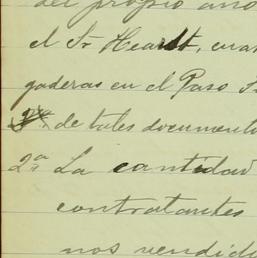 del propio año
el Sr Hearst, cua
gaderas en el Paso
de tales documento
2a. La cantidad
contratantes
nos vendido